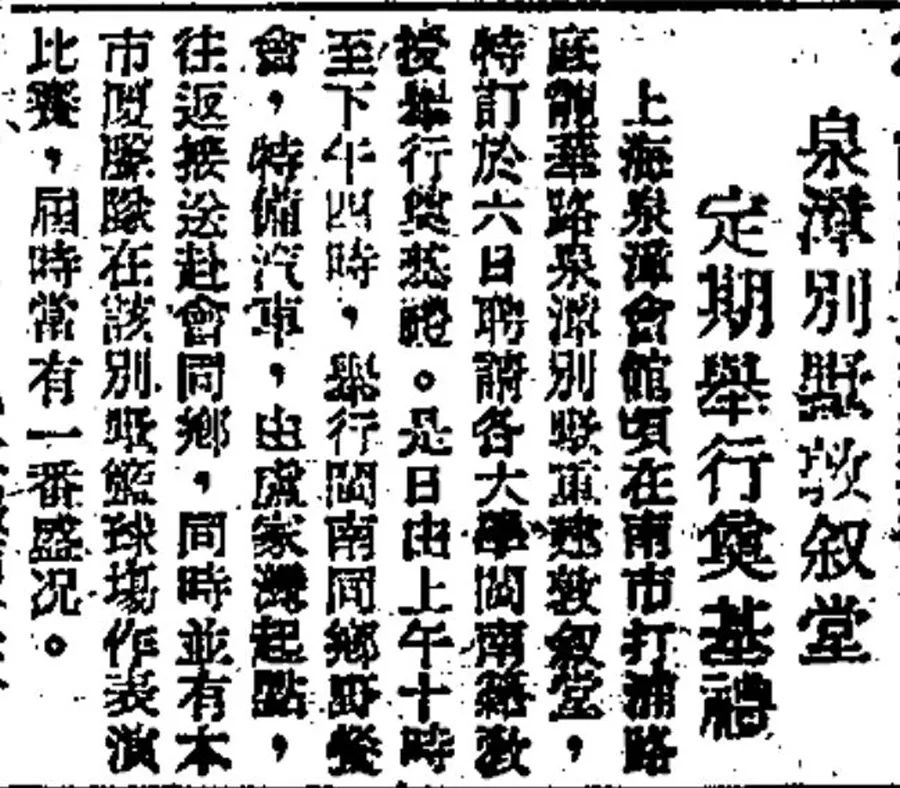 泉漳別墅敦叙堂
定期舉行奠基禮
上海泉漳會館頃在南市打浦路
底龍華路泉漳別墅重建敦叙堂，
特訂於六日聘請各大學閩南籍教
授舉行奠基禮。是日由上午十時
至下午四時，舉行閩南同鄉野餐
會，特備汽車，由盧家灣起點，
往返接送赴會同鄉，同時並有本
市廈隊在該別墅籃球場作表演
比賽，屆時當有一番盛况。